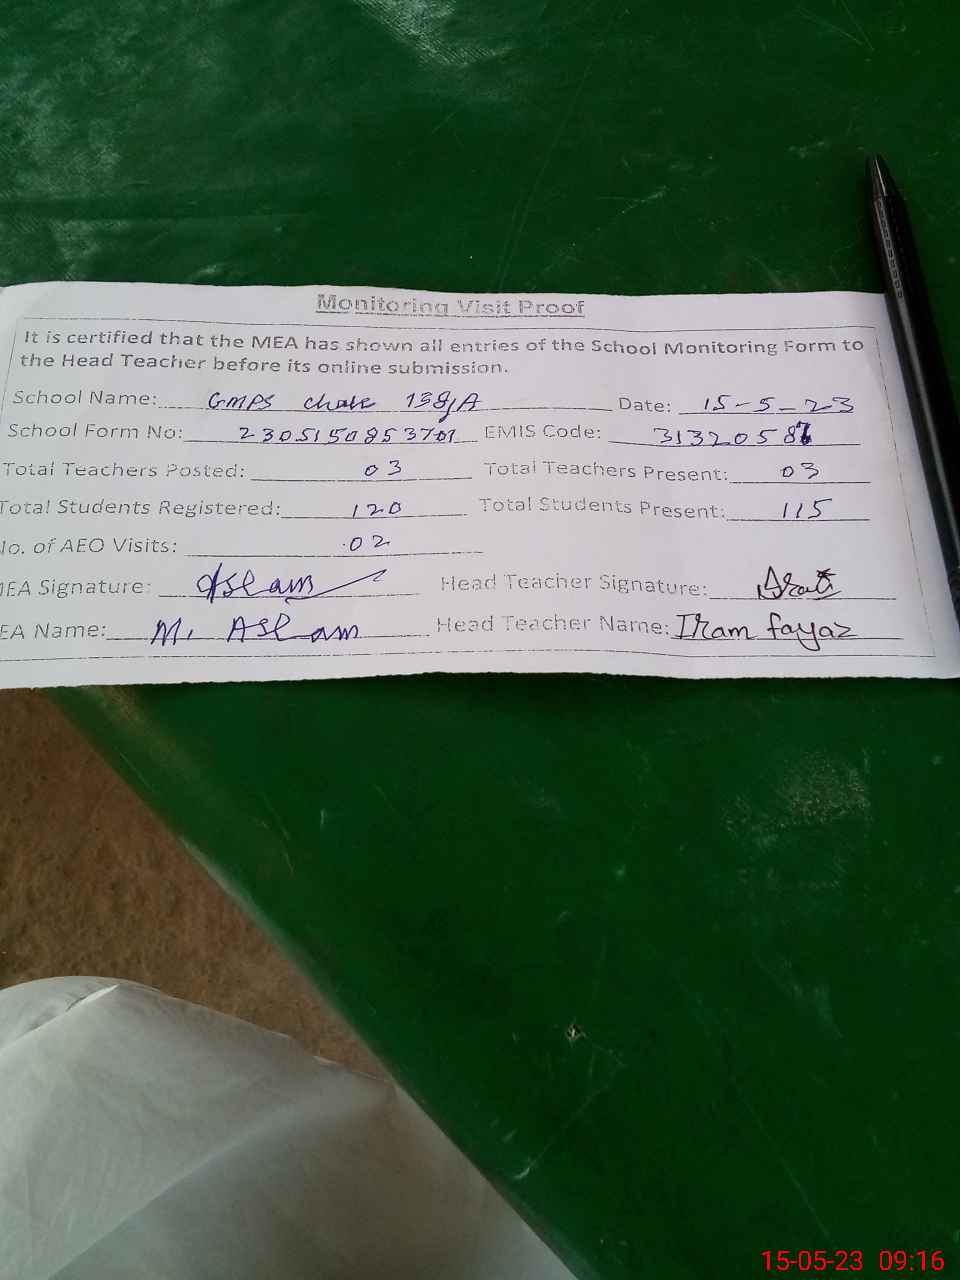 Monitoring Visit Proof
It is certified that the MEA has shown all entries of the School Monitoring Form to
the Head Teacher before its online submission.
School Name: GMPS chak 138/A Date: 15-5-23
School Form No: 2305150853701 EMIS Code: 3132058
Total Teachers Posted: 03 Total Teachers Present: 03
Total Students Registered: 120 Total Students Present: 115
No. of AEO Visits: 02
MEA Signature: Aslam Head Teacher Signature:
EA Name: M. Aslam Head Teacher Name: Iram fayaz
15-05-23 09:16